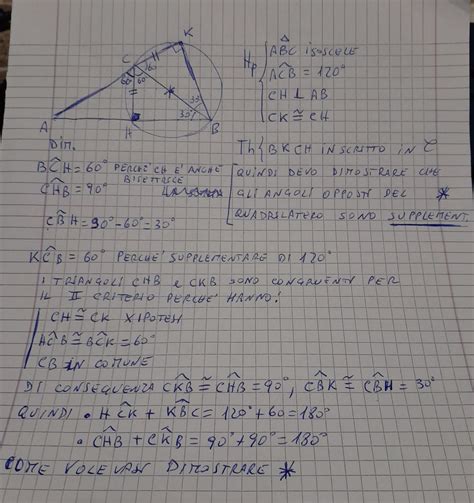 K
C
60
60
60
A
H
30°
B
Hp
ABC isoscele
ACB = 120°
CH ⊥ AB
CK ≅ CH
Dim.
Th { BKCH INSCRITTO IN C
BĈH = 60° PERCHÉ CH È ANCHE
BISETTRICE
CĤB = 90°
QUINDI DEVO DIMOSTRARE CHE
GLI ANGOLI OPPOSTI DEL *
QUADRILATERO SONO SUPPLEMENT.
CB̂H = 90° - 60° = 30°
KĈB = 60° PERCHÉ SUPPLEMENTARE DI 120°
I TRIANGOLI CHB E CKB SONO CONGRUENTI PER
IL II CRITERIO PERCHÉ HANNO:
CH ≅ CK X IPOTESI
AĈB ≅ BĈK = 60°
CB IN COMUNE
DI CONSEGUENZA CK̂B ≅ CĤB = 90°, CB̂K ≅ CB̂H = 30°
QUINDI • HĈK + KB̂C = 120° + 60 = 180°
• CĤB + CK̂B = 90° + 90° = 180°
COME VOLEVASI DIMOSTRARE *